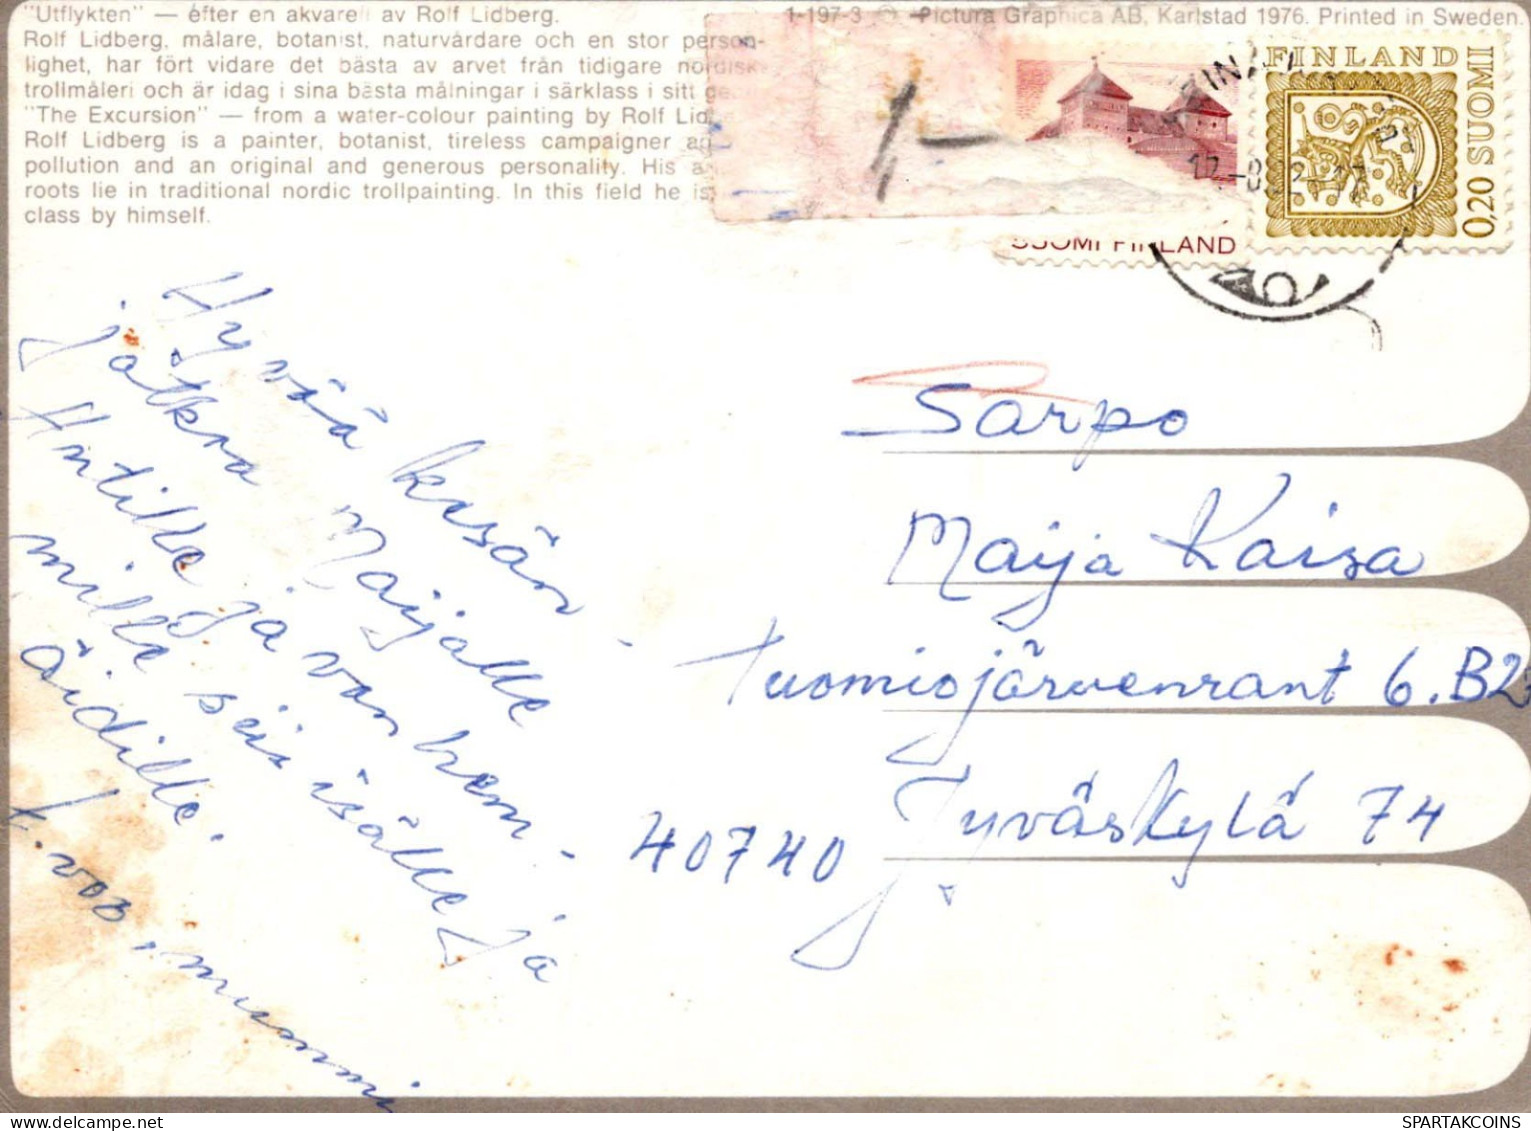 "Utflykten" — éfter en akvarell av Rolf Lidberg.
Rolf Lidberg, målare, botanist, naturvårdare och en stor person-
lighet, har fört vidare det bästa av arvet från tidigare nordisk
trollmåleri och är idag i sina bästa målningar i särklass i sitt
"The Excursion" — from a water-colour painting by Rolf
Rolf Lidberg is a painter, botanist, tireless campaigner
pollution and an original and generous personality. His
roots lie in traditional nordic trollpainting. In this field he is
class by himself.
1-197-3 © Pictura Graphica AB, Karlstad 1976. Printed in Sweden.
1,—
SUOMI FINLAND
FINLAND
0,20 SUOMI
Hyvää kesän
jatkoa Maijalle
Antille ja van hem-
mille sekä isälle ja
äidille.
t. vaa, mummi
Sarpo
Maija Kaisa
Tuomiojärvenrant 6.B2
40740 Jyväskylä 74
SPARTAKCOINS